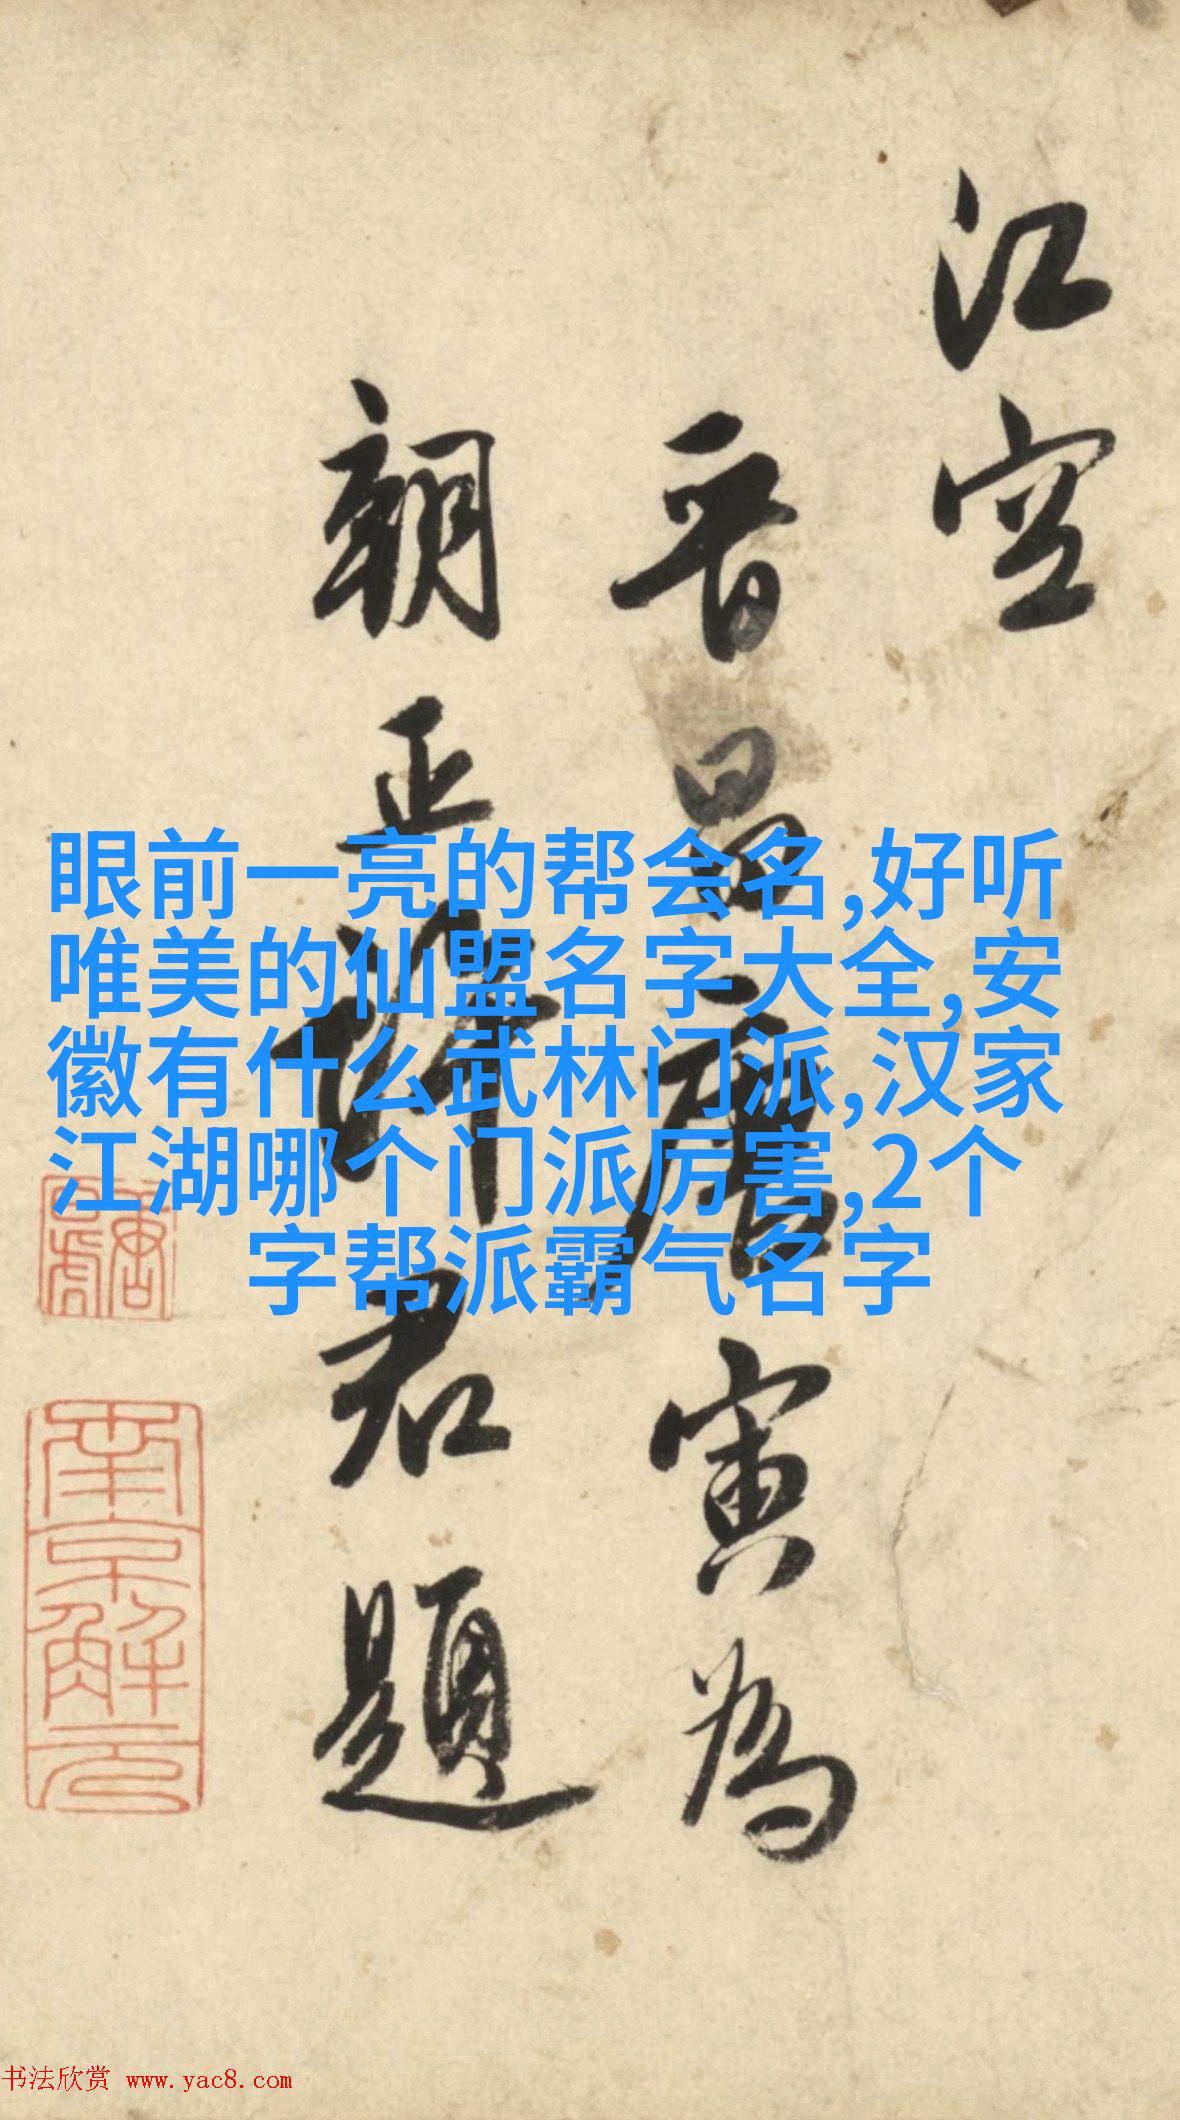 江空
晋昌唐寅為
朝正君題
眼前一亮的帮会名,好听
唯美的仙盟名字大全,安
徽有什么武林门派,汉家
江湖哪个门派厉害,2个
字帮派霸气名字
南京解元
书法欣赏 www.yac8.com